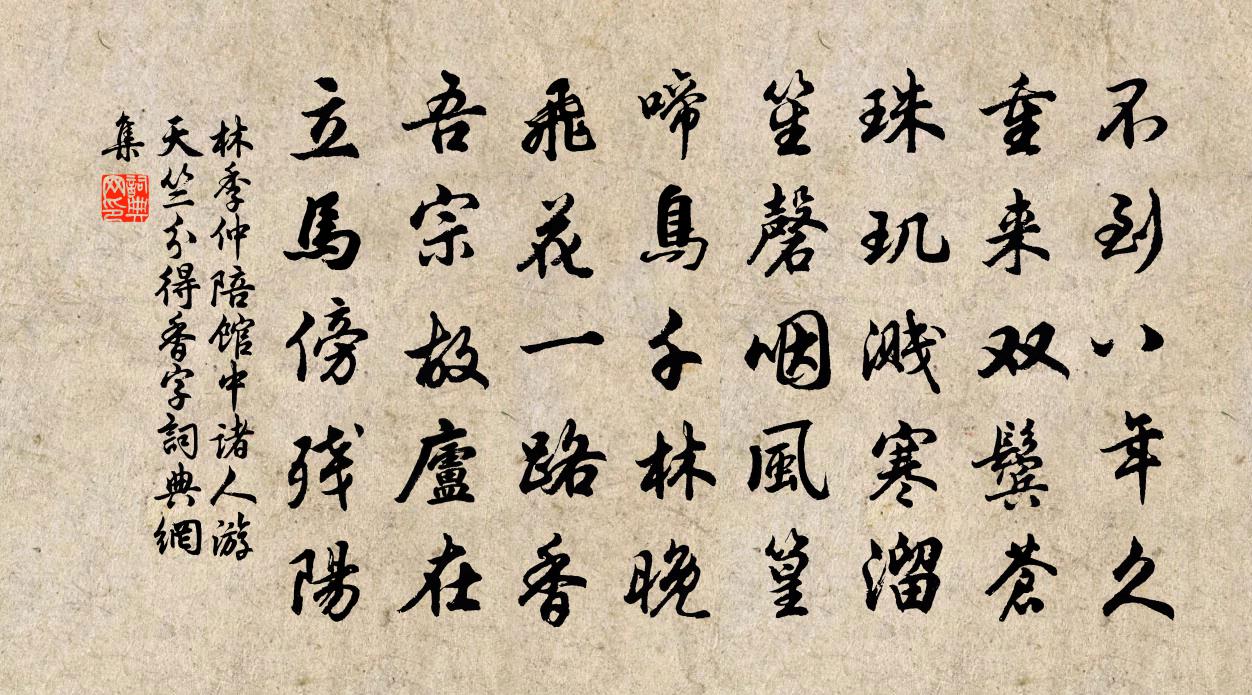 不到八年久
重来双鬓苍
珠玑溅寒溜
笙磬咽風篁
啼鳥千林晚
飛花一路香
吾宗故廬在
立馬傍残陽
林季仲陪館中諸人游
天竺分得香字詞典網
集
詞典
网印